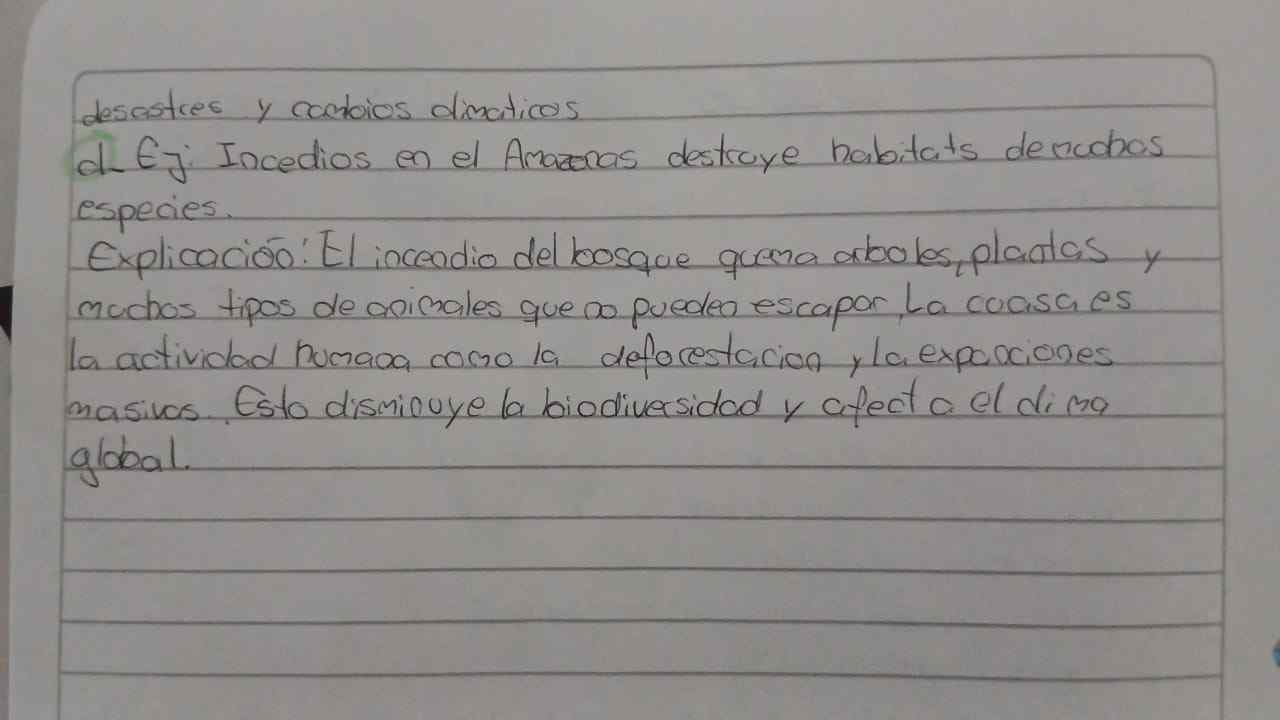 desastres y cambios climaticos
d. Ej: Incedios en el Amazonas destruye habitats de muchos
especies.
Explicación: El incendio del bosque quema arboles, plantas y
muchos tipos de animales que no pueden escapar, La cuasa es
la actividad humana como la deforestacion y la expanciones
masivas. Esto disminuye la biodiversidad y afecta el clima
global.